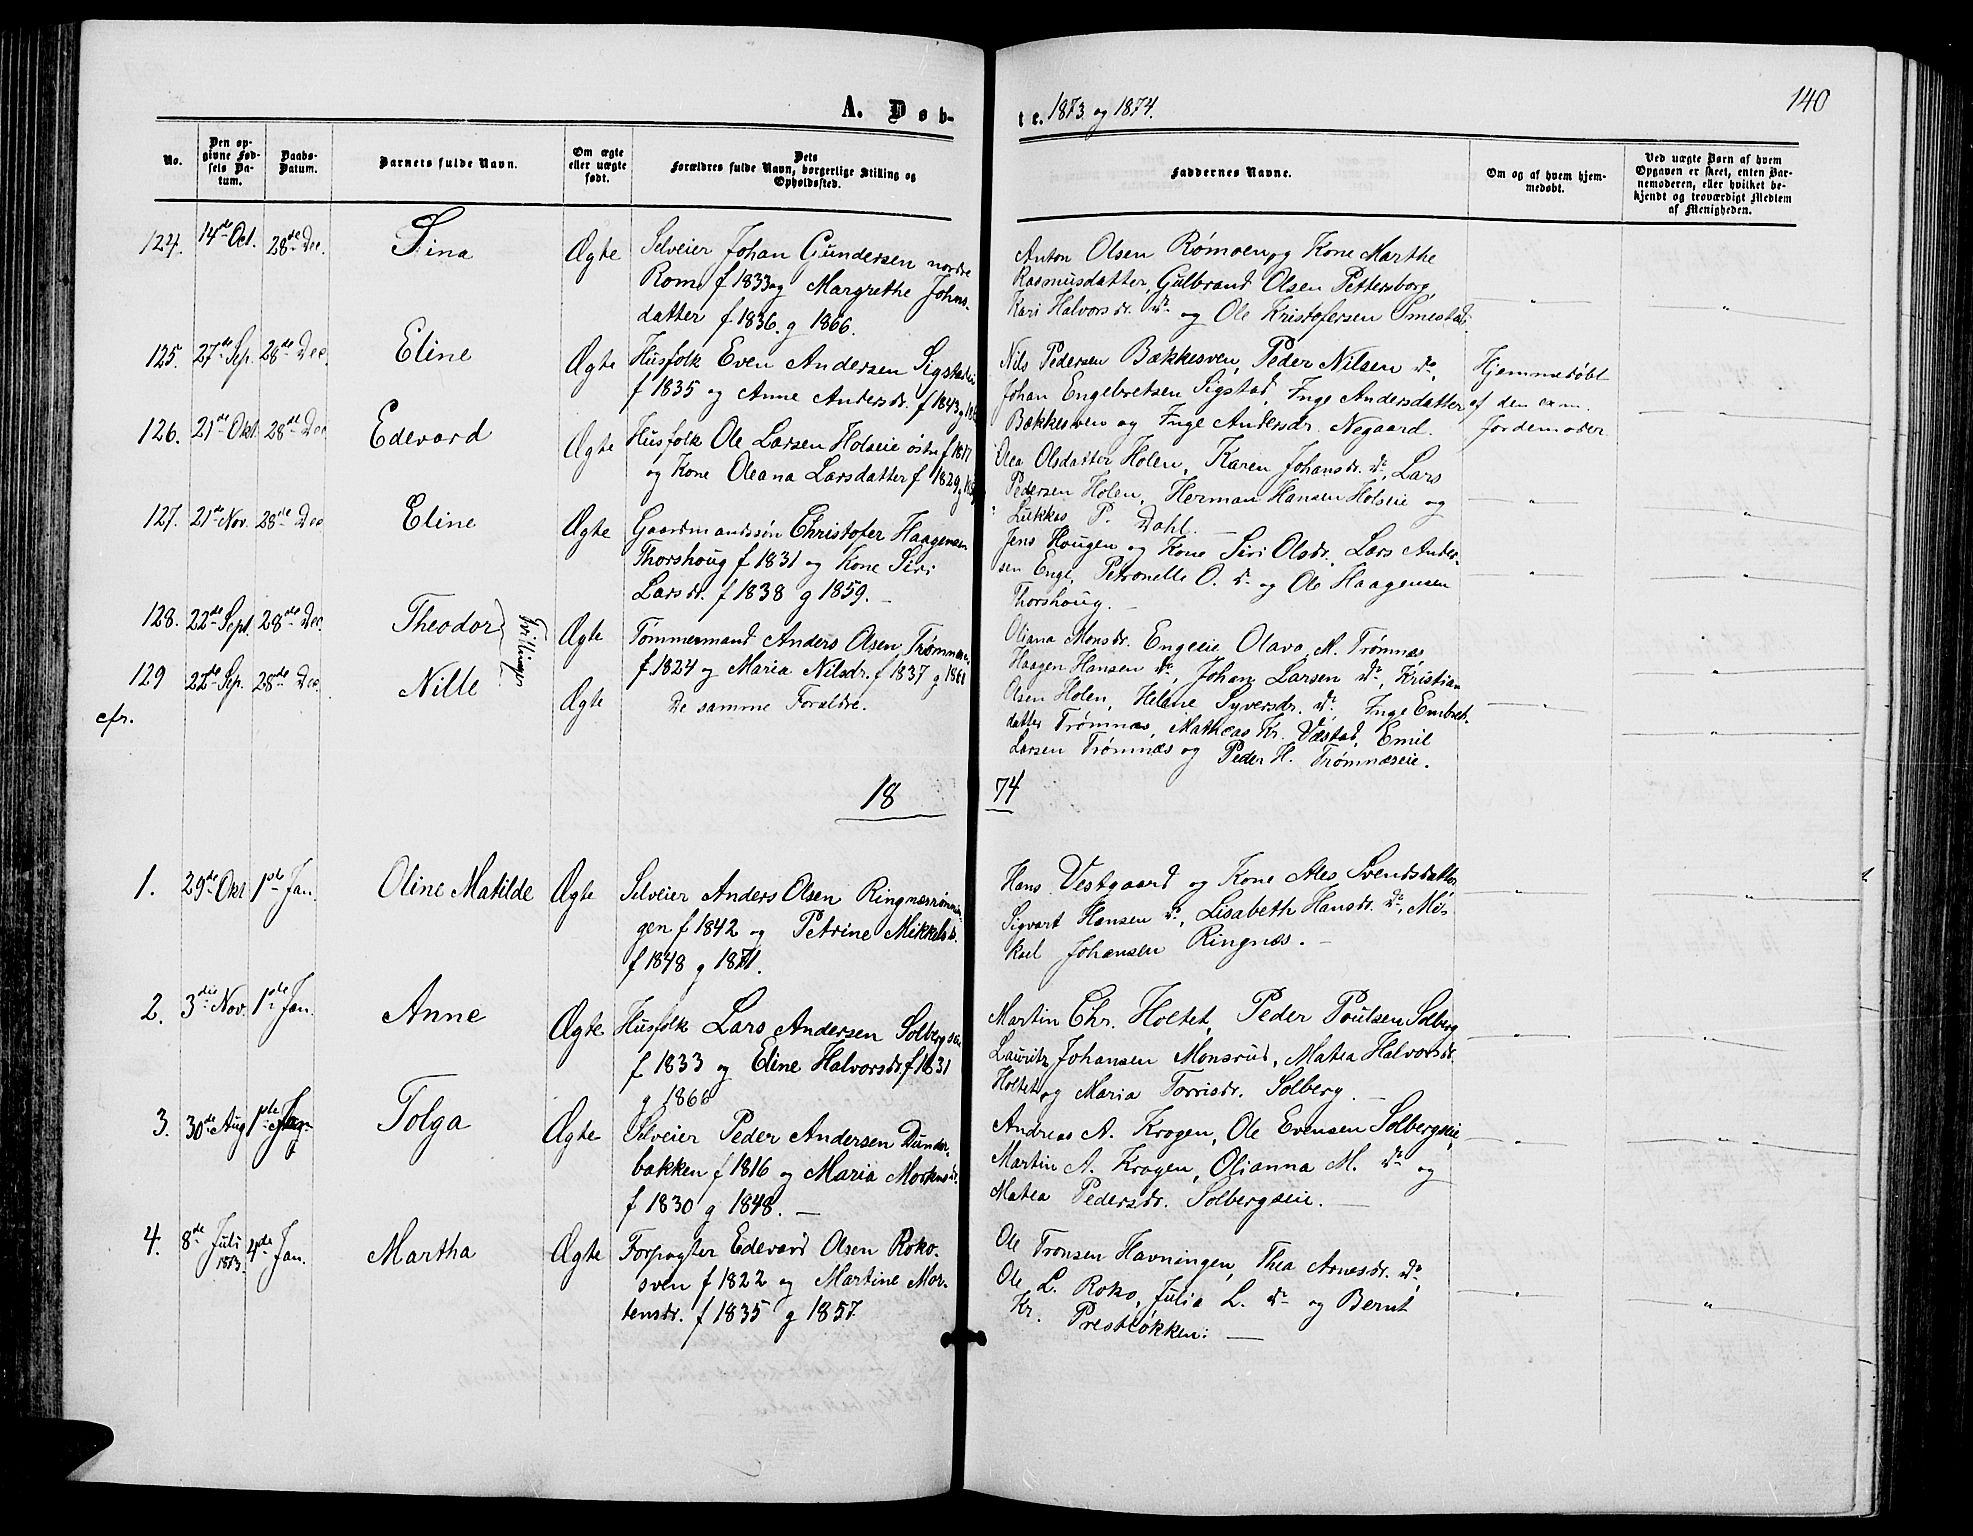 A. Døb-
te. 1873 og 1874.
140
No.
Den op-
givne Fød-
sels Da-
tum.
Daabs-
Datum.
Barnets fulde Navn.
Om ægte
eller uægte
født.
Dets
Forældres fulde Navn, borgerlige Stilling og
Opholdssted.
Faddernes Navne.
Om og af hvem hjem-
medøbt.
Ved uægte Børn af hvem
Opgaven er skeet, enten Bar-
nemoderen, eller hvilket be-
kjendt og troværdigt Medlem
af Menigheden.
124. 14de Oct. 28de Dec. Sina Ægte Selveier Johan Gundersen nordre
Rom f 1833 og Margrethe Johns-
datter f 1836. g 1866.
Anton Olsen Rømoen og Kone Marthe
Rasmusdatter, Gulbrand Olsen Pettersborg,
Kari Halvorsdr. do og Ole Kristofersen Smestad.
125. 27de Sep. 28de Dec. Eline Ægte Husfolk Even Andersen Sigstadei
f 1835 og Anne Andersdr. f 1843 g
Nils Pedersen Bækkesven, Peder Nilsen do,
Johan Engebretsen Sigstad, Inge Andersdatter
Bækkesven og Inge Andersdr. Negaard.
Hjemmedøbt
af den exm.
Jordemoder
126. 21de Okt. 28de Dec Edevard Ægte Husfolk Ole Larsen Holseie østre f 1817
og Kone Oleana Larsdatter f 1829 g
Olea Olsdatter Holen, Karen Johansdr. do, Lars
Pedersen Holen, Herman Hansen Holseie og
Lukkas P. Dahl. —
127. 21de Nov. 28de Dec Eline Ægte Gaardmandssøn Christofer Haagensen
Thorshoug f 1831 og Kone Siri
Larsdr. f 1838 g 1859. —
Jens Hougen og Kone Siri Olsdr., Lars Ander-
sen Enge, Petronelle O. do og Ole Haagensen
Thorshoug. —
128. 22de Sept. 28de Dec. Theodor Tvillinger Ægte Tømmermand Anders Olsen Trømnæs
f. 1824 og Maria Nilsdr. f 1837 g 1860
129 22de Sep. 28de Dec. Nille Ægte De samme Forældre.
cfr.
Oliana Monsdr. Engeeie, Olava M. Trømnæs
Haagen Hansen do, Johan Larsen do, Kristian
Olsen Holen, Helene Syversdr. do, Inge Embret-
datter Trømnæs, Mathæas Kr. Væstad, Emil
Larsen Trømnæs og Peder H. Trømnæseie.
18 74
1. 29de Okt 1ste Jan. Oline Matilde Ægte Selveier Anders Olsen Ringnæsrønnin-
gen f 1842 og Petrine Mikkelsdr.
f 1848 g 1871.
Hans Vestgaard og Kone Ales Svendsdatter
Sigvart Hansen do, Lisabeth Hansdr. do, Mik-
kael Johansen Ringnæs. —
2. 3die Nov. 1ste Jan. Anne Ægte Husfolk Lars Andersen Solbergseie
f 1833 og Eline Halvorsdr. f 1831
g 1866
Martin Chr. Holtet, Peder Poulsen Solberg
Lauritz Johansen Monsrud, Matea Halvorsdr.
Holtet og Maria Torrisdr. Solberg. —
3. 30de Aug 1ste Jan Tolga Ægte Selveier Peder Andersen Dunder-
bakken f 1816 og Maria Mortensdr.
f 1830 g 1848. —
Andreas A. Krogen, Ole Evensen Solbergseie,
Martin A. Krogen, Olianna M. do og
Matea Pedersdr. Solbergseie. —
4. 8de Juli 1873. 4de Jan. Martha Ægte Forpagter Edevard Olsen Roko-
sven f 1822 og Martine Mor-
tensdr. f 1835 g 1857
Ole Tronsen Havningen, Thea Arnesdr. do,
Ole L. Roko, Julia L. do og Bernt
Kr. Prestløkken. —